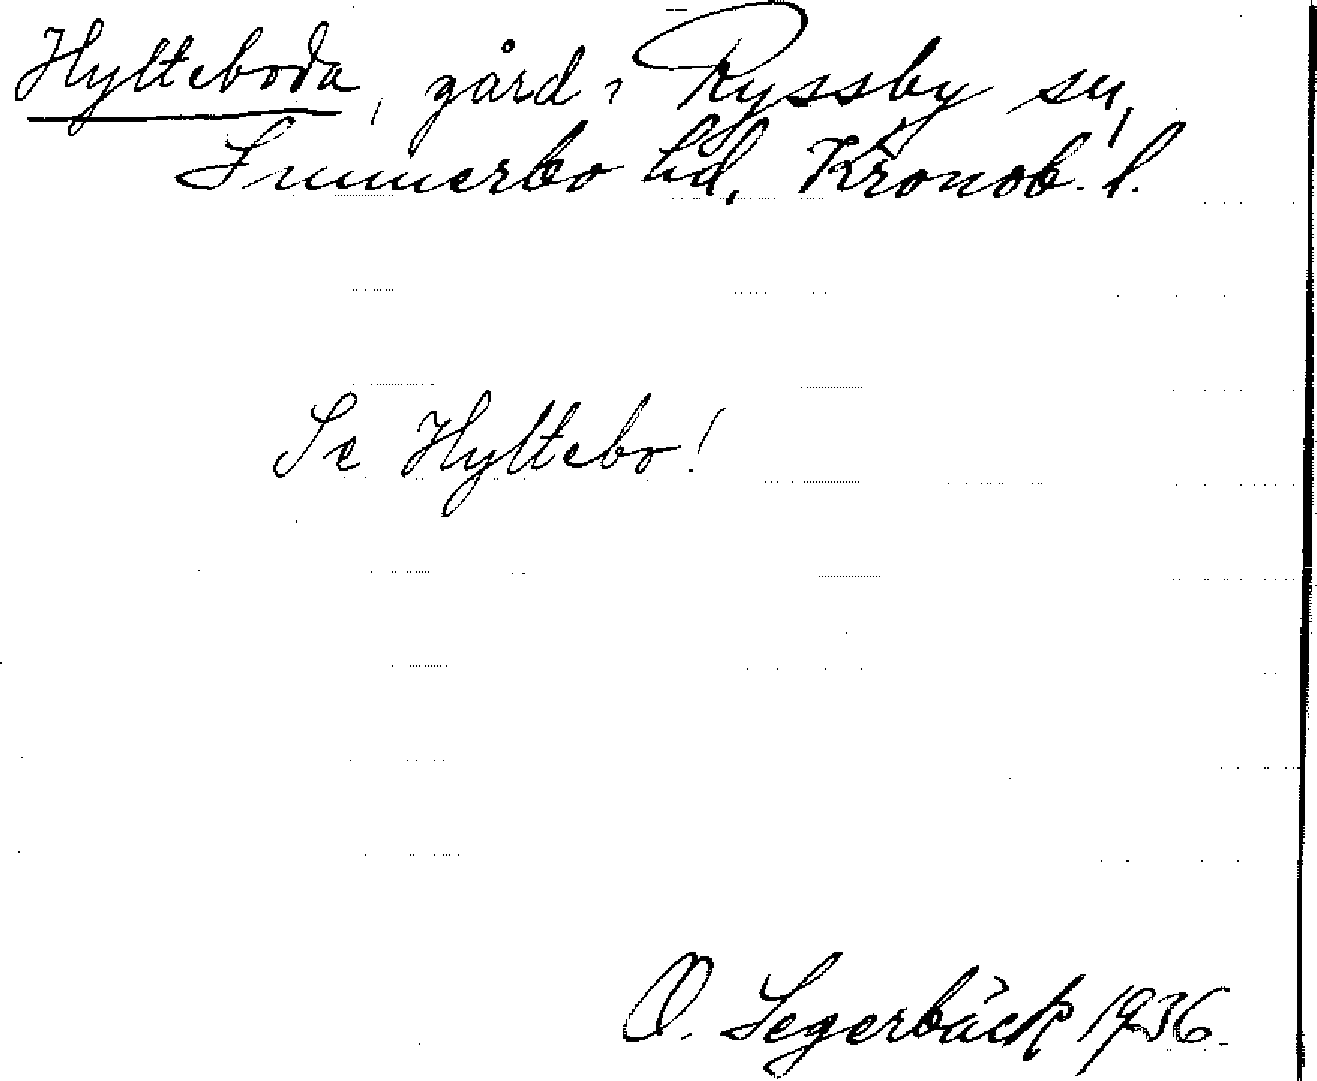 Hylteboda, gård i Ryssby sn,
Sunnerbo hd, Kronob. l.
Se Hyltebo!
O. Segerbäck 1936.